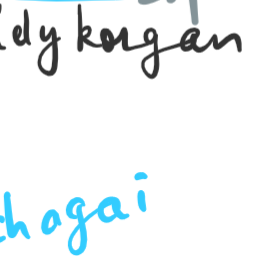 ldykorgan
thagai